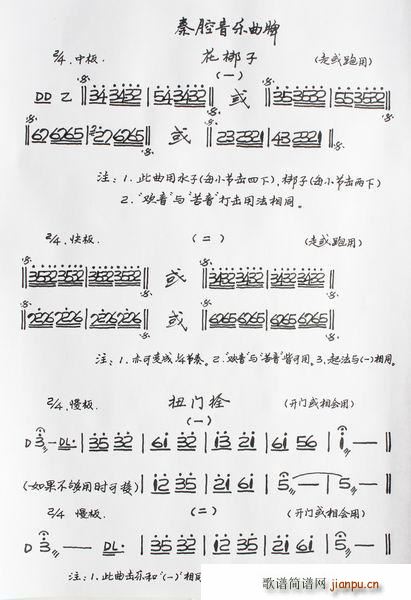 秦腔音乐曲牌
2/4.中板. 花梆子 (走或跑用)
(一)
DD 乙 ‖34 3432 | 54 3432‖ 或 ‖35 3532 | 55 3532‖
‖62 6265 | 22 6265‖ 或 ‖23 2321 | 43 2321‖
注：1.此曲用水子(每小节击四下),梆子(每小节击两下)
2."欢音"与"苦音"打击用法相同。
2/4.快板. (二) (走或跑用)
‖3532 3532 | 3532 3532‖ 或 ‖3432 3432 | 3432 3432‖
‖2226 2226 | 2226 2226‖ 或 ‖6265 6265 | 6265 6265‖
注：1.亦可变成¼节奏。2."欢音"与"苦音"皆可用。3.起法与(一)相同。
2/4.慢板. 扭门栓 (开门或相会用)
(一)
D 3 — DL· | 35 32 | 61 32 | 13 21 | 61 56 | 1 — |
(如果不够用时可接) | 12 35 | 21 61 | 5 — | 5 — |
2/4 慢板 (二) (开门或相会用)
D 3 — DL· | 35 32 | 12 35 | 21 61 | 5 — |
注：1.此曲击乐和"(一)"相同
歌谱简谱网
jianpu.cn